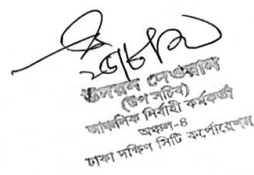 (উপ সচিব)
আঞ্চলিক নির্বাহী কর্মকর্তা
অঞ্চল-৪
ঢাকা দক্ষিণ সিটি কর্পোরেশন